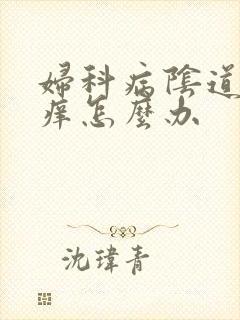 婦科病陰道
痒怎麼办
沈瑋青